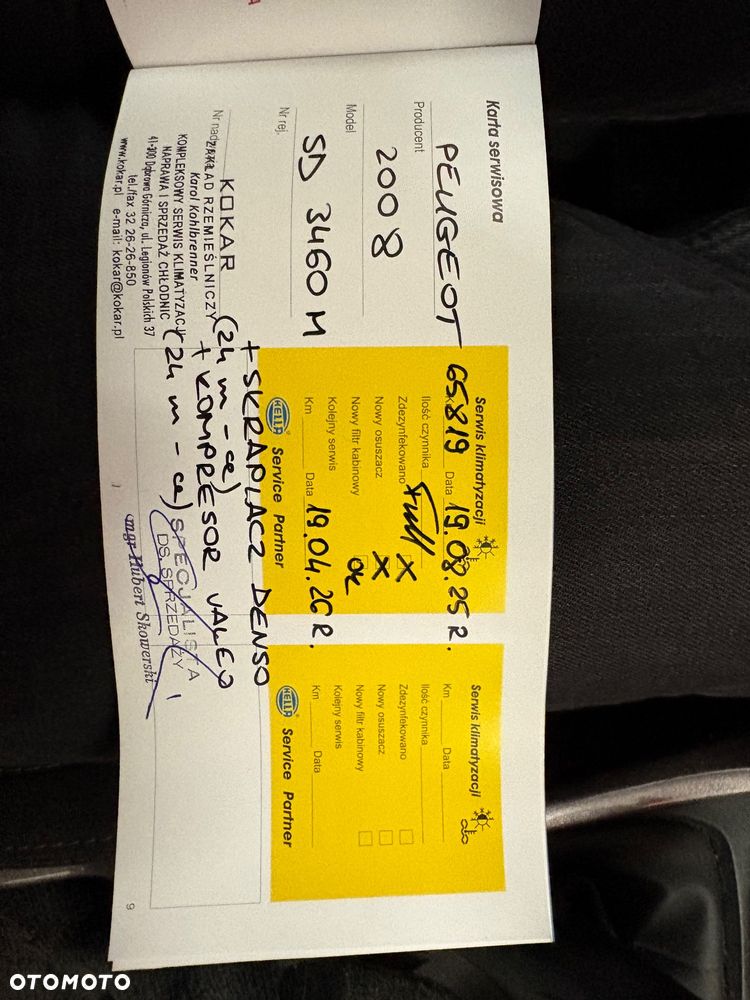 Karta serwisowa
PEUGEOT
Producent
2008
Model
SD 3460 M
Nr rej.
Nr nadwozia
ZAKŁAD RZEMIEŚLNICZY
KOKAR
Karol Kohlbrenner
KOMPLEKSOWY SERWIS KLIMATYZACJI
NAPRAWA I SPRZEDAŻ CHŁODNIC
41-300 Dąbrowa Górnicza, ul. Legionów Polskich 37
tel./fax 32 26-26-850
www.kokar.pl e-mail: kokar@kokar.pl
Serwis klimatyzacji
Km 65819 Data 19.08.25 R.
Ilość czynnika Full
Zdezynfekowano X
Nowy osuszacz X
Nowy filtr kabinowy ok
Kolejny serwis
Km Data 19.04.26 R.
HELLA Service Partner
+ SKRAPLACZ DENSO
(24 m-ce)
+ KOMPRESOR VALEO
(24 m-ce)
SPECJALISTA
DS. SPRZEDAŻY
mgr Hubert Skowerski
Serwis klimatyzacji
Km Data
Ilość czynnika
Zdezynfekowano
Nowy osuszacz
Nowy filtr kabinowy
Kolejny serwis
Km Data
HELLA Service Partner
9
OTOMOTO